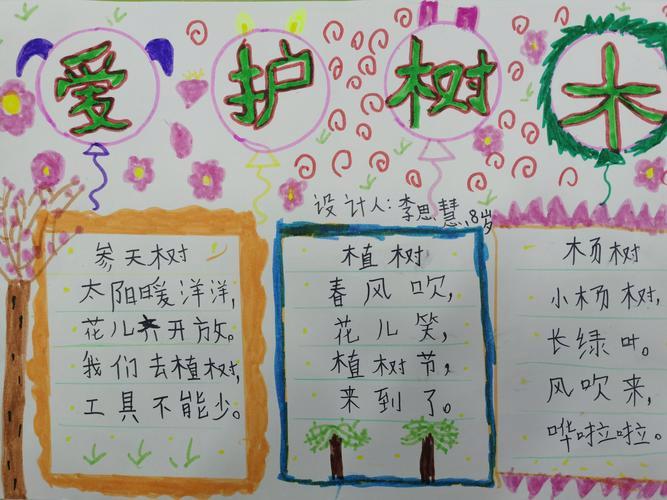 爱护树木
设计人:李思慧,8岁
参天树
太阳暖洋洋,
花儿开放。
我们去植树,
工具不能少。
植树
春风吹,
花儿笑,
植树节,
来到了。
杨树
小杨树,
长绿叶。
风吹来,
哗啦啦。